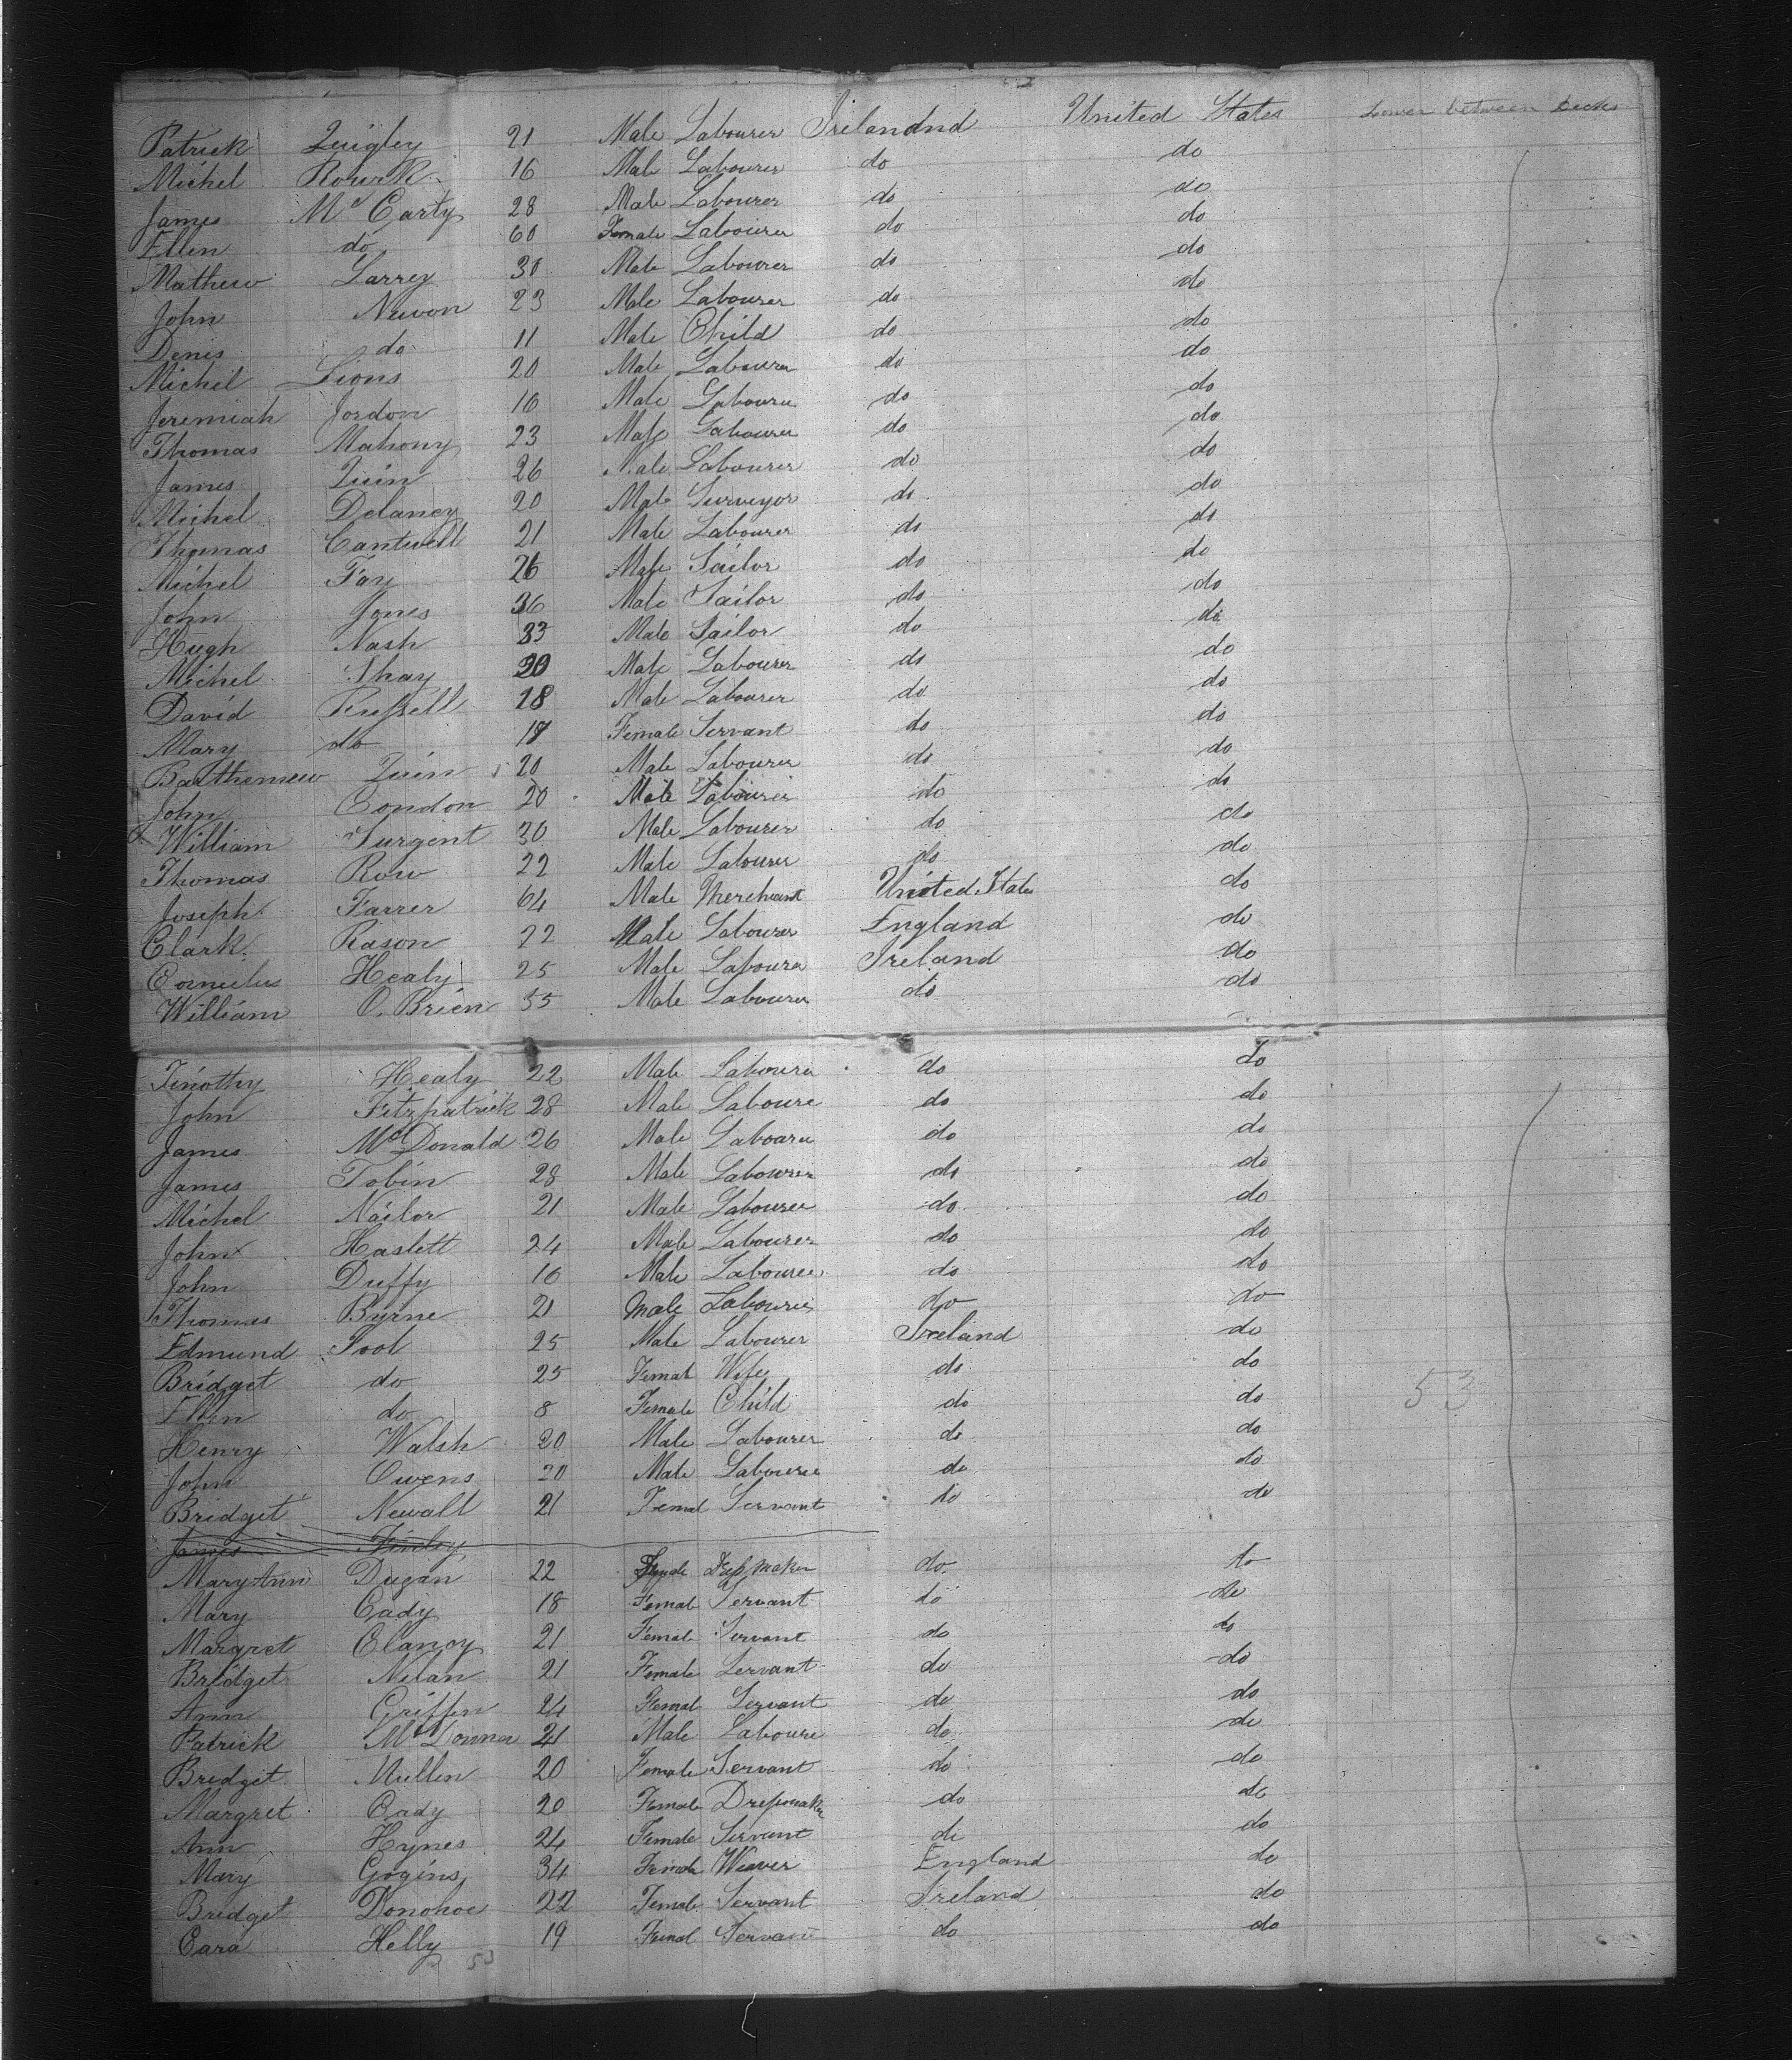 Patrick Quigley 21 Male Labourer Irelandnd United States Lower between Decks
Michel Rourk 16 Male Labourer do do
James Mc Carty 28 Male Labourer do do
Ellen do 60 Female Labourer do do
Mathew Larrey 30 Male Labourer do do
John Newon 23 Male Labourer do do
Denis do 11 Male Child do do
Michel Lions 20 Male Labourer do do
Jeremiah Jordon 16 Male Labourer do do
Thomas Mahony 23 Male Labourer do do
James Quin 26 Male Labourer do do
Michel Delaney 20 Male Surveyor do do
Thomas Cantwell 21 Male Labourer do do
Michel Fay 26 Male Sailor do do
John Jones 36 Male Sailor do do
Hugh Nash 33 Male Sailor do do
Michel Shay 20 Male Labourer do do
David Russell 18 Male Labourer do do
Mary do 17 Female Servant do do
Barthemew Quin 20 Male Labourer do do
John Condon 20 Male Labourer do do
William Surgent 30 Male Labourer do do
Thomas Row 22 Male Labourer do do
Joseph Farrer 64 Male Merchant United States do
Clark Rason 22 Male Labourer England do
Cornielus Healy 25 Male Labourer Ireland do
William O. Brien 35 Male Labourer do do
Timothy Healy 22 Male Labourer do do
John Fitzpatrick 28 Male Laboure do do
James Mc Donald 26 Male Labourer do do
James Tobin 28 Male Labourer do do
Michel Nailor 21 Male Labourer do do
John Haslett 24 Male Labourer do do
John Duffy 16 Male Labourer do do
Thomas Byrne 21 Male Labourer do do
Edmund Pool 25 Male Labourer Ireland do
Bridget do 25 Femal Wife do do
Ellen do 8 Female Child do do 53
Henry Walsh 20 Male Labourer do do
John Owens 20 Male Labourer do do
Bridget Newall 21 Femal Servant do do
James Finley
Mary Ann Dugan 22 Female Dressmaker do do
Mary Cady 18 Femal Servant do do
Margret Clancy 21 Femal Servant do do
Bridget Nilan 21 Female Servant do do
Ann Griffen 24 Femal Servant do do
Patrick Mc Donna 21 Male Laboure do do
Bredget Mullen 20 Female Servant do do
Margret Cady 20 Female Dressmaker do do
Ann Hynes 24 Female Servant do do
Mary Gogins 34 Female Weaver England do
Bredget Donohoe 22 Female Servant Ireland do
Cara Helly 19 Femal Servant do do
53